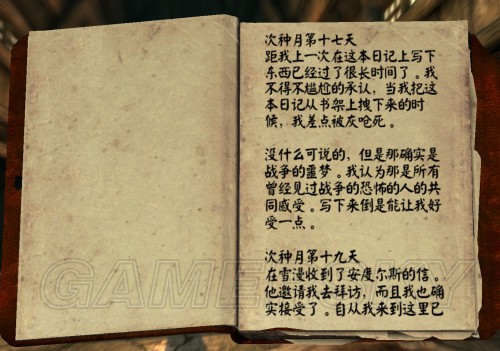 次种月第十七天
距我上一次在这本日记上写下
东西已经过了很长时间了。我
不得不尴尬的承认，当我把这
本日记从书架上拽下来的时
候，我差点被灰呛死。
没什么可说的，但是那确实是
战争的噩梦。我认为那是所有
曾经见过战争的恐怖的人的共
同感受。写下来倒是能让我好
受一点。
次种月第十九天
在雪漫收到了安度尔斯的信。
他邀请我去拜访，而且我也确
实接受了。自从我来到这里已
GAMERSKY